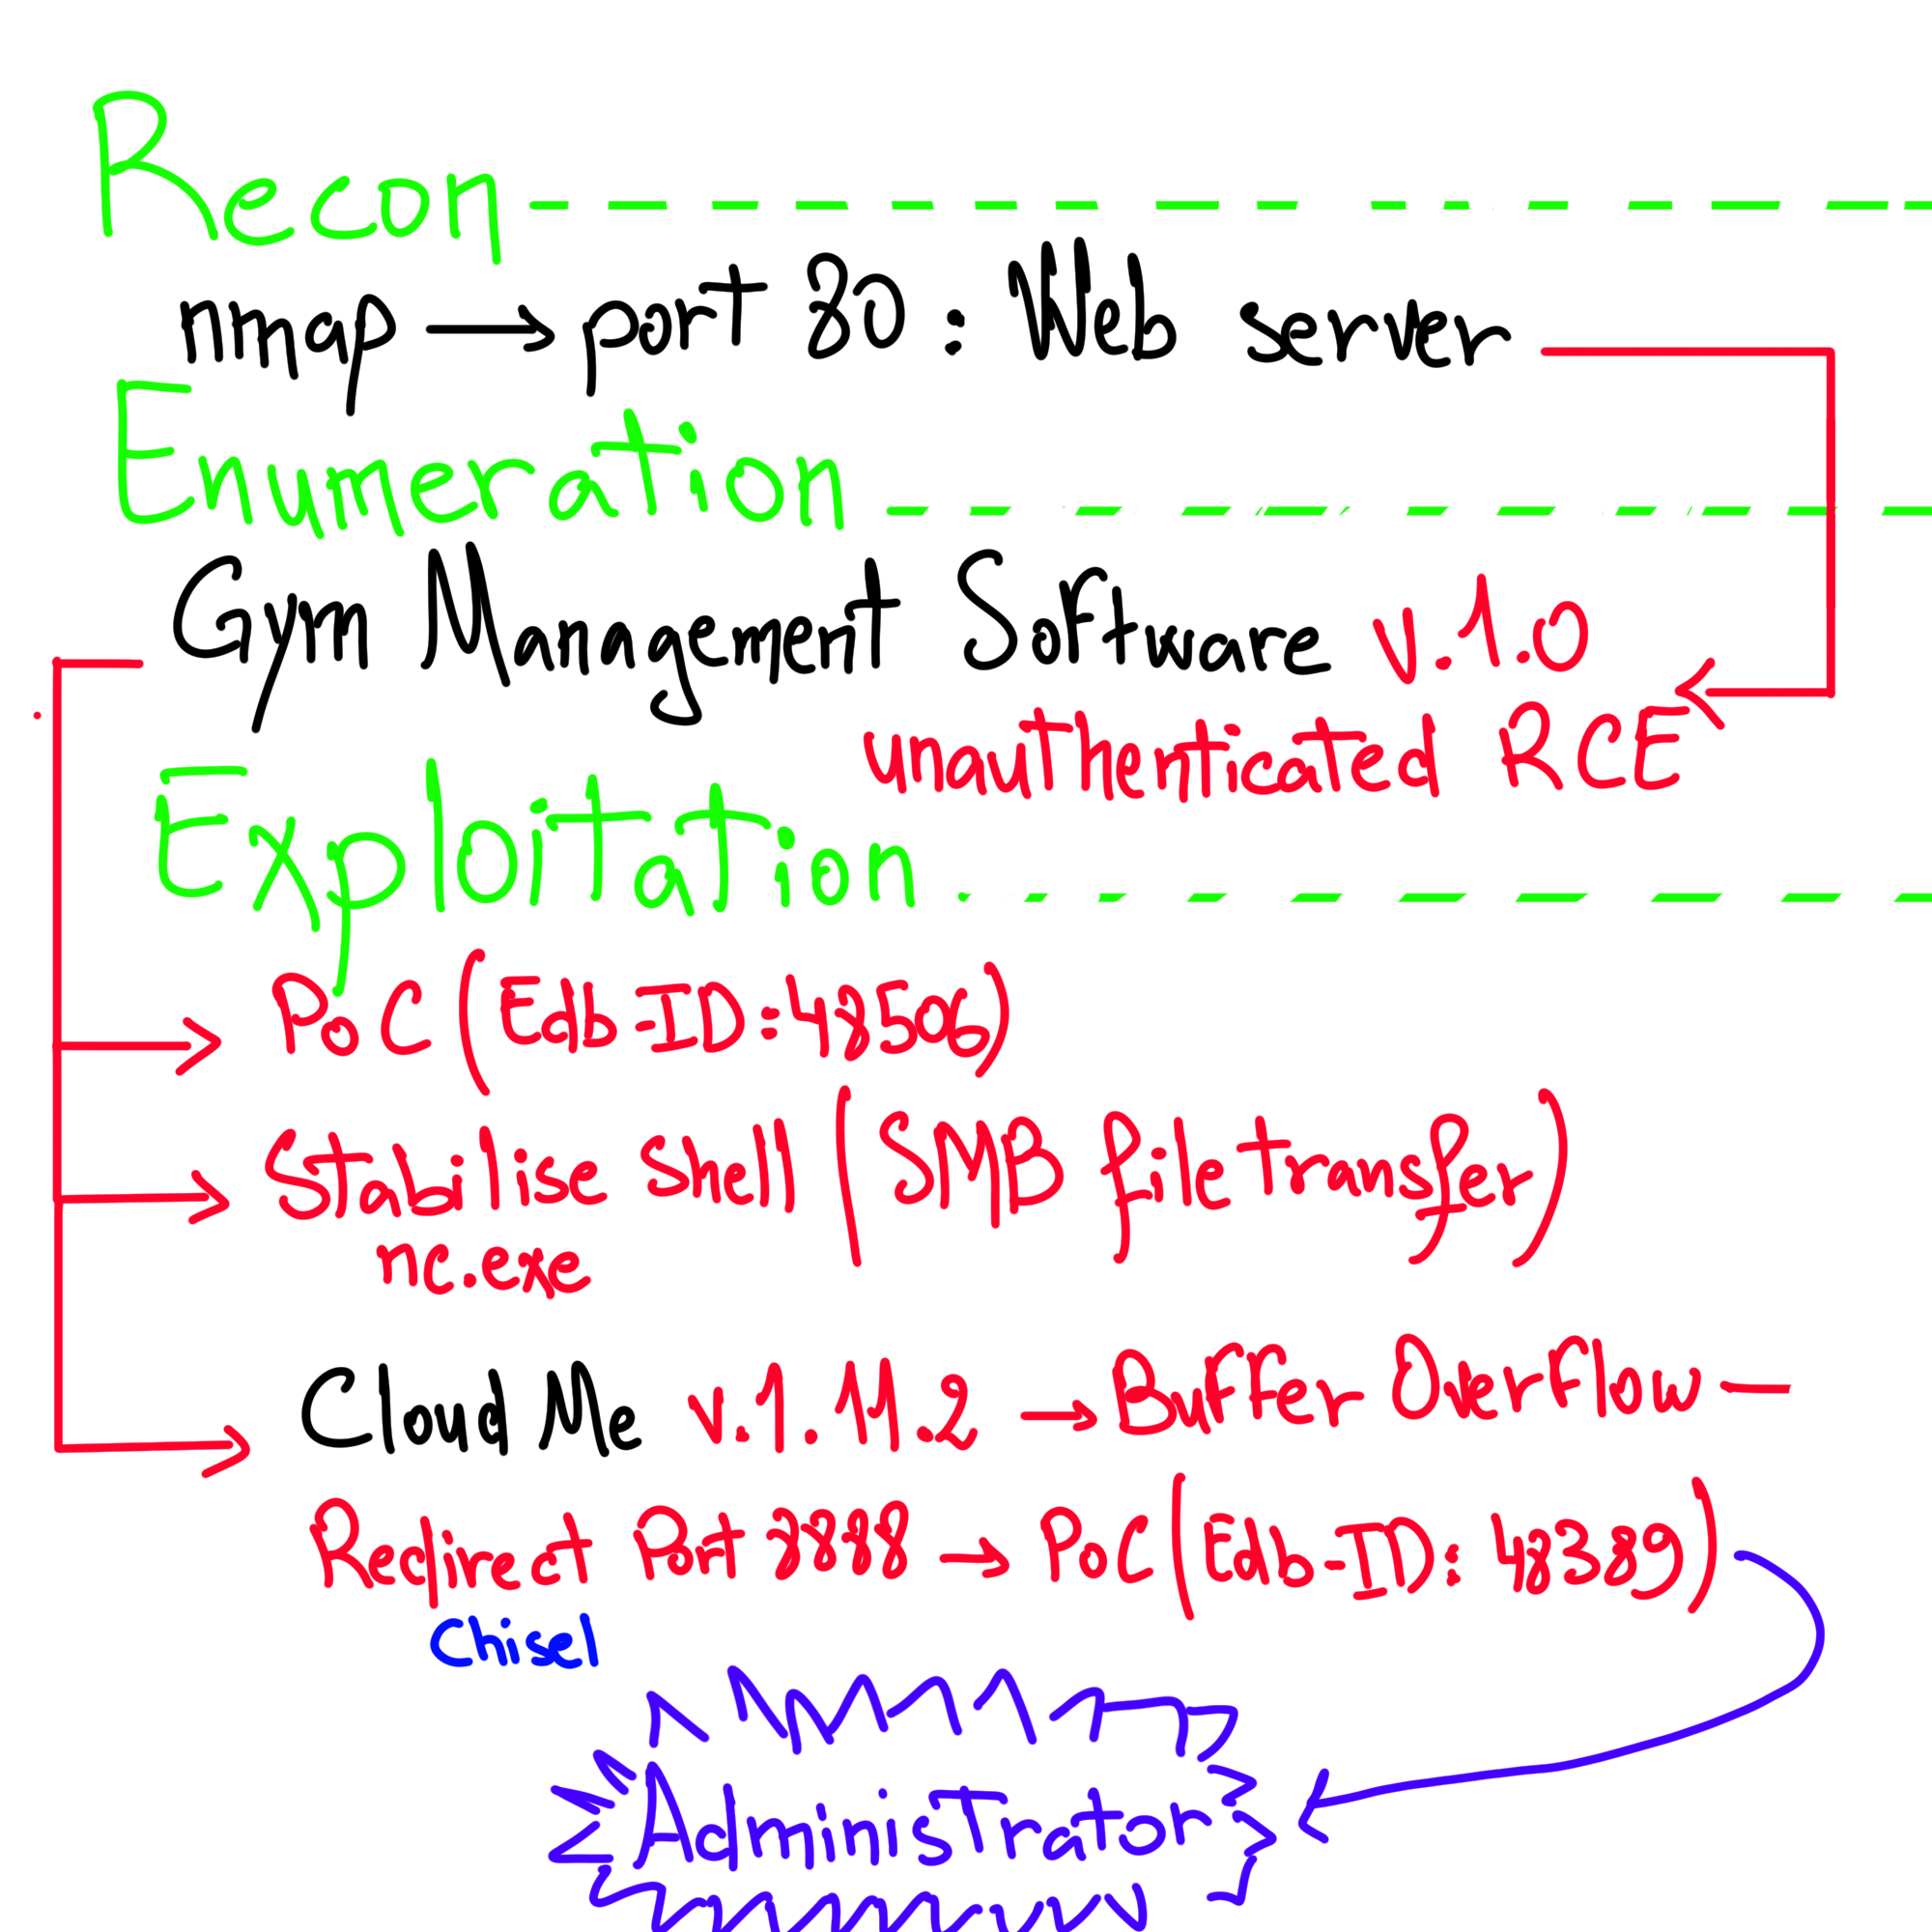 Recon
nmap → port 80: Web server
Enumeration
Gym Management Software v.1.0
unauthenticated RCE
Exploitation
PoC (Edb-ID:48506)
Stabilise shell (SMB filetransfer)
nc.exe
CloudMe v.1.11.2 → Buffer Overflow
Redirect Port 8888 → PoC (Edb-ID: 48389)
Chisel
Administrator